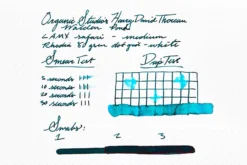 Organic Studio's Henry David Thoreau
Walden Pond
LAMY safari - medium
Rhodia 80 gsm dot grid - white
Smear Test Drip Test
5 seconds
10 seconds
20 seconds
30 seconds
Swabs:
1 2 3